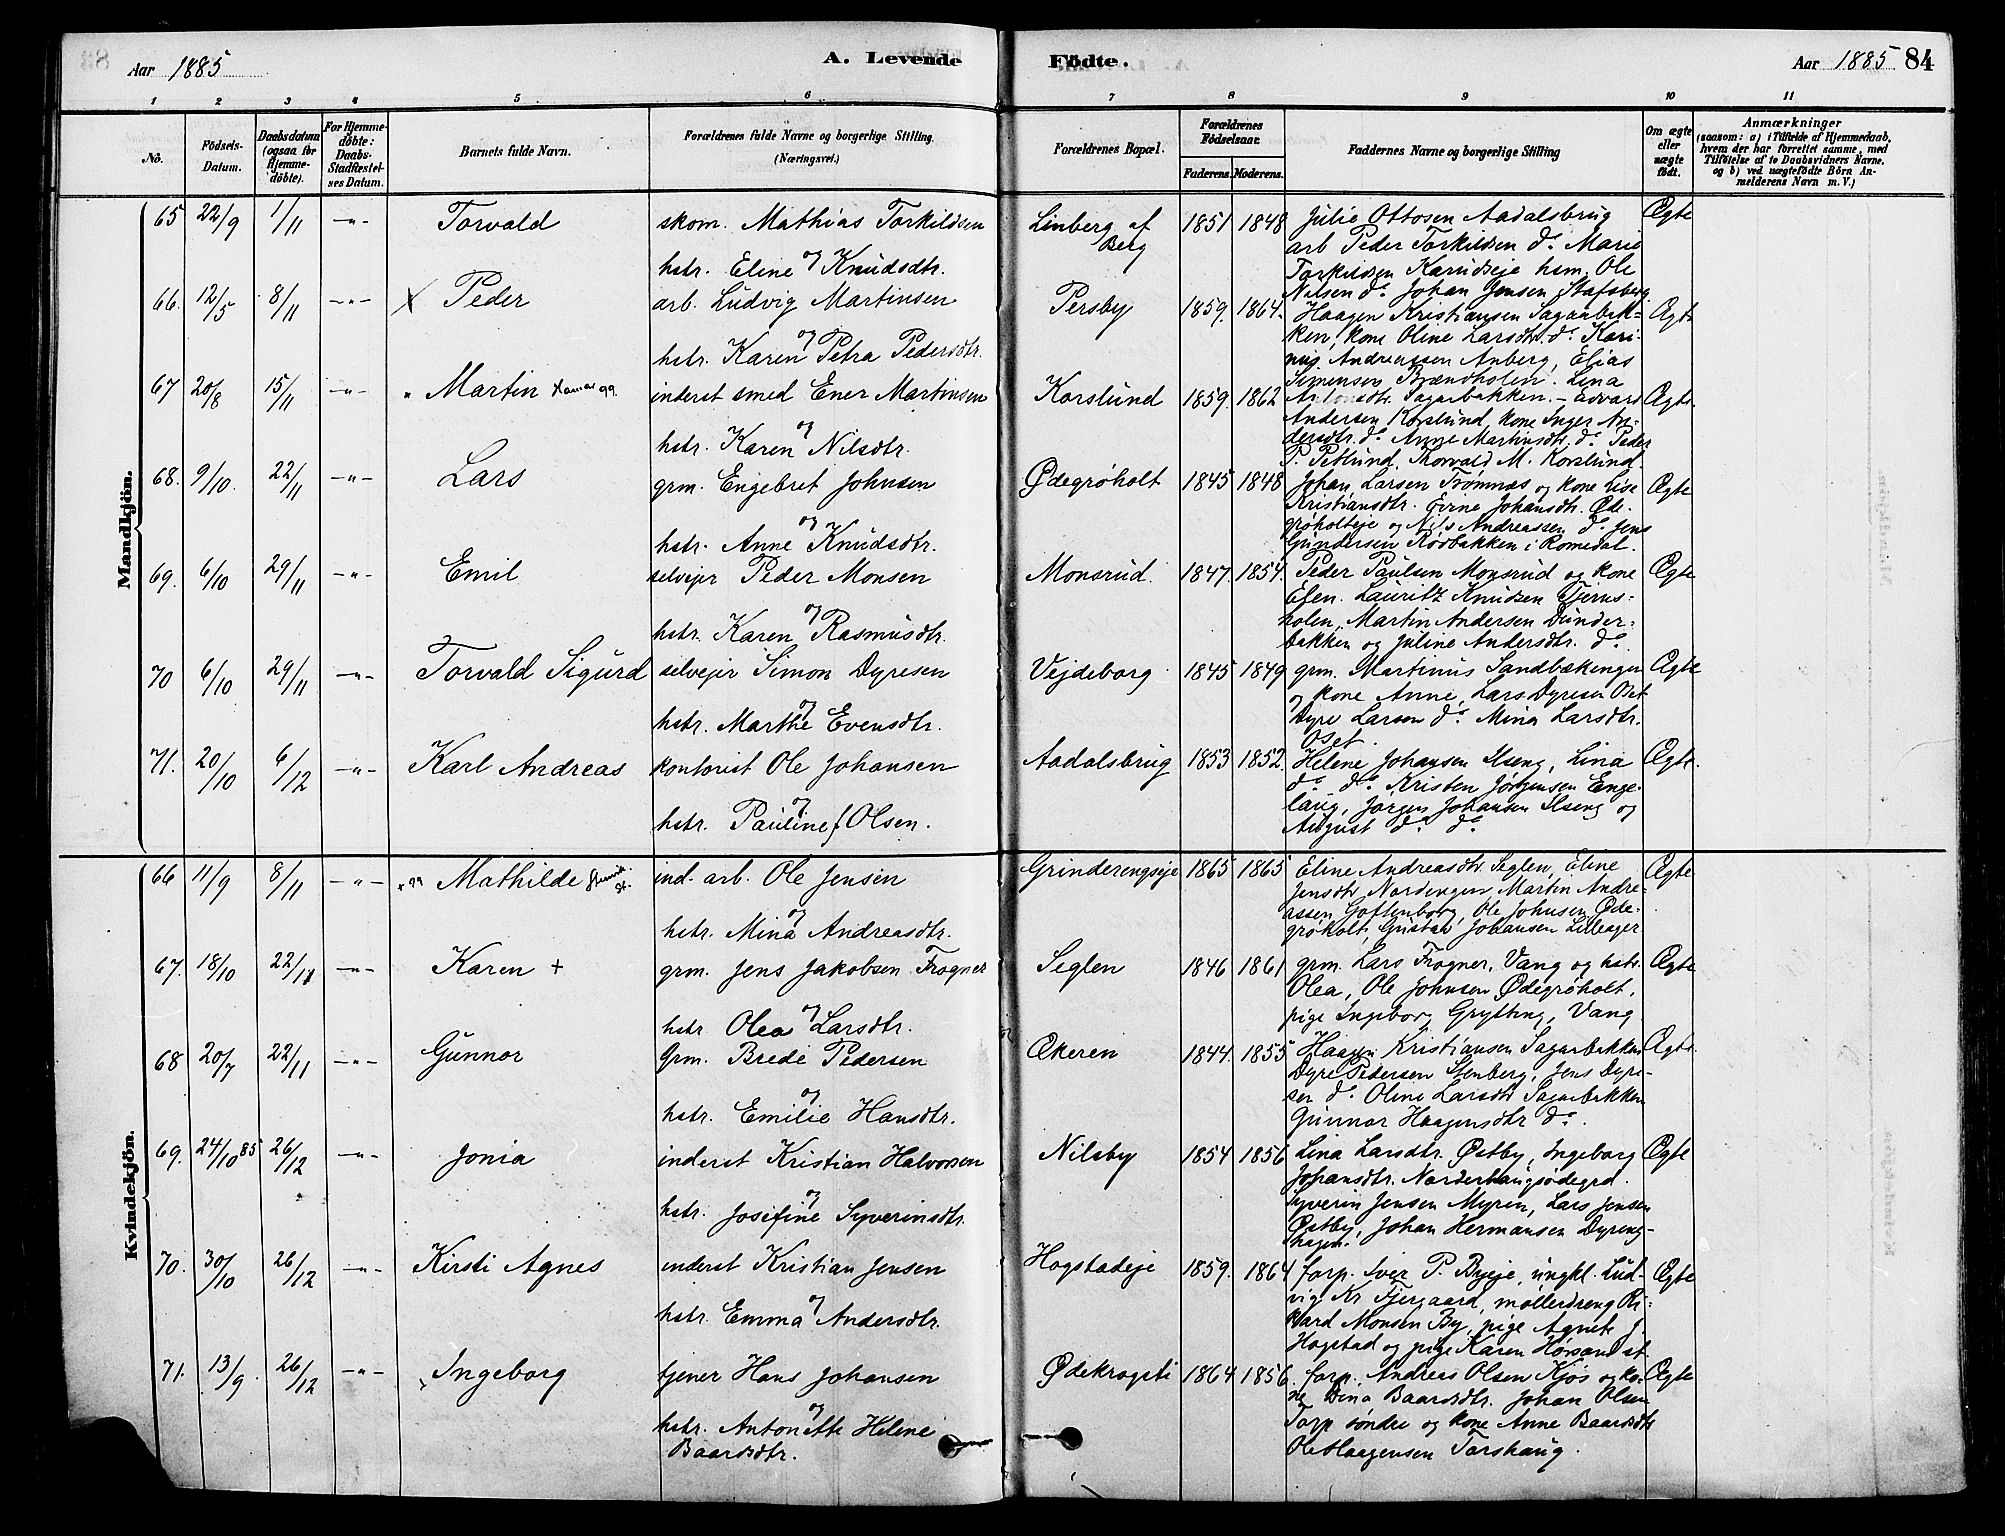 Aar 1885
A. Levende
Födte.
Aar 1885 84
1 2 3 4 5 6 7 8 9 10 11
No.
Födsels-
Datum.
Daabsdatum
(ogsaa for
Hjemme-
døbte).
For Hjemme-
döbte:
Daabs-
Stadfæstel-
ses Datum.
Barnets fulde Navn.
Forældrenes fulde Navne og borgerlige Stilling
(Næringsvei.)
Forældrenes Bopæl.
Forældrenes
Födselsaar.
Faderens. Moderens.
Faddernes Navne og borgerlige Stilling
Om ægte
eller
uægte
født.
Anmærkninger
(saasom: a) i Tilfælde af Hjemmedaab,
hvem der har forrettet samme, med
Tilföielse af to Daabsvidners Navne,
og b) ved uægtefödte Börn An-
melderens Navn m. V.)
Mandkjön.
65 22/9 1/11 -"- Torvald
skom. Mathias Torkildsen
og
hstr. Eline Knudsdtr.
Linberg af
Berg
1851 1848
Julie Ottosen Aadalsbrug
arb Peder Torkildsen do. Marie
Torkildsen Karudseje hsm. Ole
Nilsen do. Johan Jensen Stafsberg
Ægte
66. 12/5 8/11 -"- X Peder
arb. Ludvig Martinsen
og
hstr. Karen Petra Pedersdtr.
Persby
1859. 1864.
Haagen Kristiansen Sagarbak-
ken, kone Oline Larsdtr. do. Kari-
nus Andreassen Anberg, Elias
Simensen Brændholen. Lina
Antonsdtr. Sagarbakken.
Ægte
67 20/8 15/11 -"- Martin
inderst smed Ener Martinsen
og
hstr. Karen Nilsdtr.
Korslund
1859. 1862
Edvard
Andersen Korslund, kone Inger An-
dersdtr. do. Anne Martinsdtr. do. Peder
P. Petlund, Thorvald M. Korslund.
Ægte.
68. 9/10. 22/11 -"- Lars
grm. Engebret Johnsen
og
hstr. Anne Knudsdtr.
Ødegrøholt
1845 1848
Johan Larsen Trømnæs og kone Lise
Kristiansdtr. Eirne Johansdtr. Øde-
grøholteje og Nils Andreassen do. Jens
Gundersen Rødbakken i Romedal.
Ægte
69. 6/10 29/11 -"- Emil
selvejer Peder Monsen
og
hstr. Karen Rasmusdtr.
Monsrud.
1847. 1854.
Peder Paulsen Monsrud og kone
Elen. Lauritz Knudsen Tjerns-
holen, Martin Andersen Dunder-
bakken og Juline Andersdtr. do.
Ægte
70 6/10 29/11 -"- Torvald Sigurd
selvejer Simon Dyresen
og
hstr. Marthe Evensdtr.
Vejdeborg
1845 1849
grm. Martinus Sandbækengen
og kone Anne, Lars Dyresen Oset
Dyre Larsen do. Mina Larsdtr.
Oset.
Ægte
71. 20/10 6/12 -"- Karl Andreas
kontorist Ole Johansen
og
hstr. Pauline Olsen.
Aadalsbrug
1853 1852.
Helene Johansen Ilseng, Lina
do. do. Kristen Jørgensen Enge-
laug, Jørgen Johansen Ilseng og
August do. do.
Ægte.
Kvindekjön.
66 11/9 8/11 -"- Mathilde
ind. arb. Ole Jensen
og
hstr. Mina Andreasdtr.
Grinderengseje
1865 1865
Eline Andreasdtr. Seglen, Eline
Jensdtr. Nordengen Martin Andre-
assen Goftenborg, Ole Johnsen Øde-
grøholt, Gustav Johansen Lilleager
Ægte
67. 18/10 22/11 -"- Karen +
grm. Jens Jakobsen Frogner
og
hstr. Olea Larsdtr.
Seglen
1846 1861
grm. Lars Frogner, Vang og hstr.
Olea, Ole Johnsen Ødegrøholt,
pige Ingeborg Grytting, Vang
Ægte
68 20/7 22/11 -"- Gunnor
Grm. Brede Pedersen
og
hstr. Emilie Hansdtr.
Økeren
1844. 1855
Haagen Kristiansen Sagarbakken
Dyre Pedersen Stenberg, Jens Dyre-
sen do. Oline Larsdtr Sagarbakken
Gunnor Haagensdtr do.
Ægte.
69. 24/10 85 26/12 -"- Jonia
inderst Kristian Halvorsen
og
hstr. Josefine Syverinsdtr.
Nilsby
1854 1856
Lina Larsdtr. Østby, Ingeborg
Johansdtr. Norderhaugsødegrd.
Syverin Jensen Myren, Lars Jensen
Østby, Johan Hermansen Dyreng-
hagen.
Ægte
70. 30/10 26/12 -"- Kirsti Agnes
inderst Kristian Jensen
og
hstr. Emma Andersdtr.
Hogstadeje
1859. 1864
forp. Iver P. Byeje, ungkl. Lud-
vig Kr. Fjergaard, møllerdreng Ri-
kard Monsen By, pige Agnete J.
Hogstad og pige Karen Hørsand st
Ægte
71. 13/9 26/12 -"- Ingeborg
tjener Hans Johansen
og
hstr. Antonette Helene
Baardsdtr.
Ødekrogsti
1864 1856.
forp. Andreas Olsen Kjos og ko-
ne Dina Baardsdtr. Johan Olsen
Torp søndre og kone Anne Baardsdtr
Ole Haagensen Torshaug.
Ægte